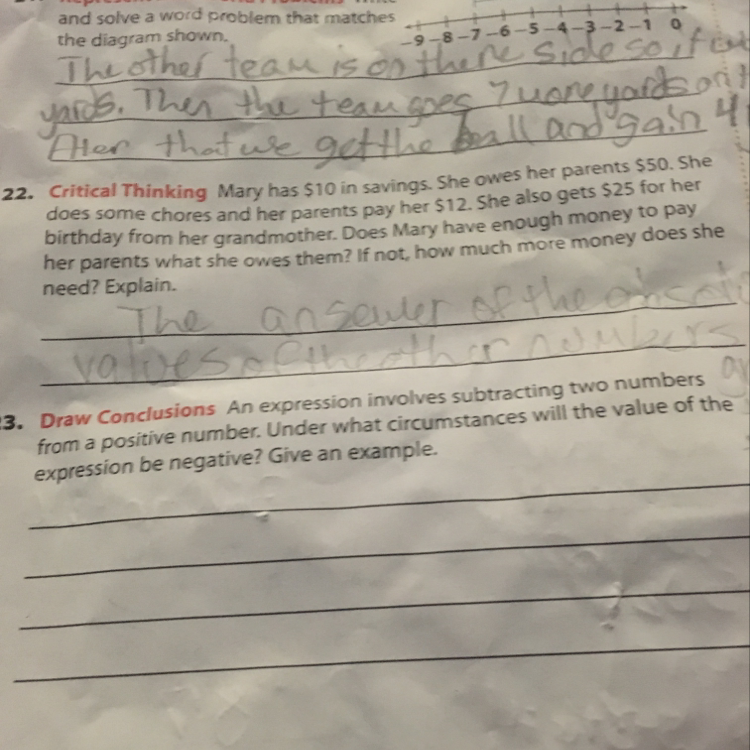 and solve a word problem that matches
the diagram shown.
-9 -8 -7 -6 -5 -4 -3 -2 -1 0
The other team is on there side so if
yards. Then the team goes 7 more yards on
After that we get the ball and gain 4
22. Critical Thinking Mary has $10 in savings. She owes her parents $50. She
does some chores and her parents pay her $12. She also gets $25 for her
birthday from her grandmother. Does Mary have enough money to pay
her parents what she owes them? If not, how much more money does she
need? Explain.
The ansewer of the
values of the other numbers
3. Draw Conclusions An expression involves subtracting two numbers
from a positive number. Under what circumstances will the value of the
expression be negative? Give an example.